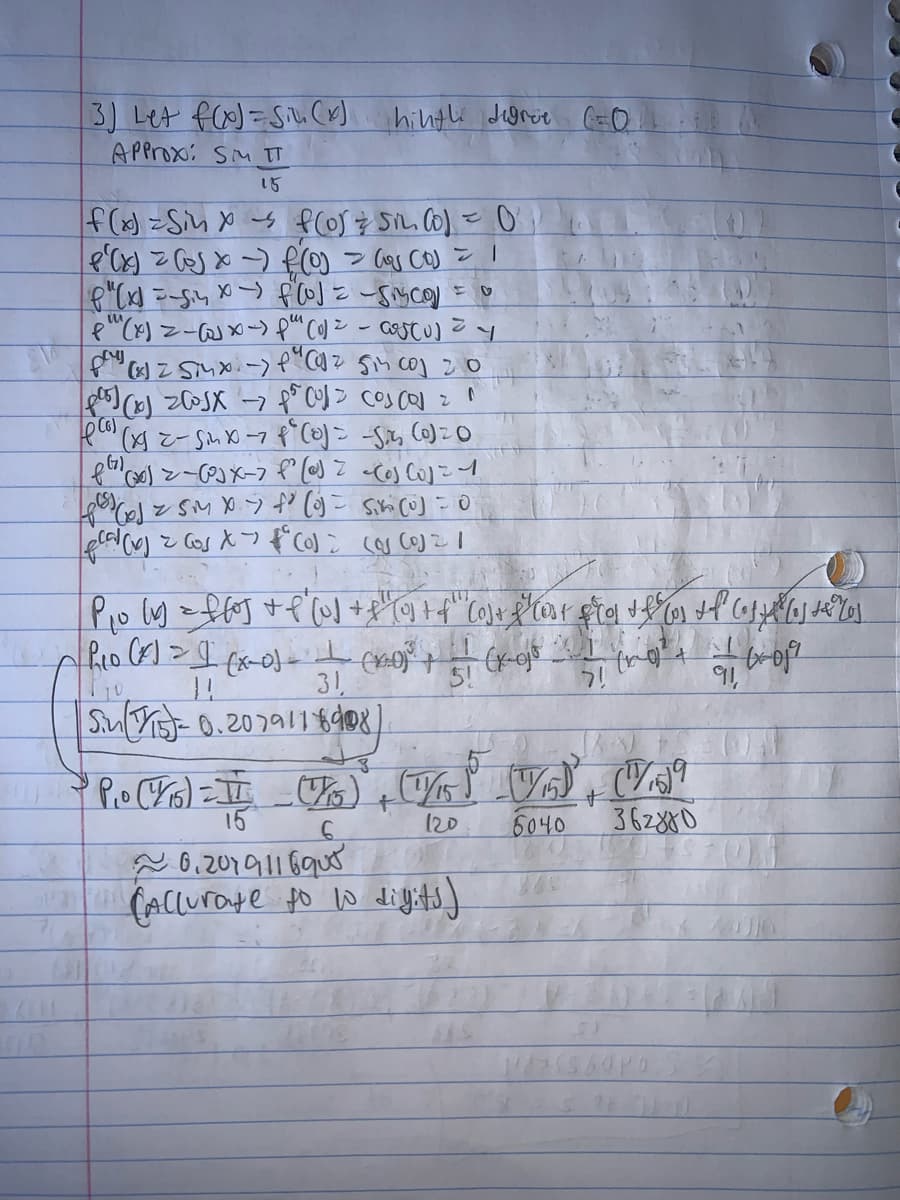 3) Let f(x) = Sin(x) ninth degree C=0
Approx: Sin π/15
f(x) = Sin x → f(0) = Sin(0) = 0
f'(x) = Cos x → f'(0) = Cos(0) = 1
f''(x) = -Sin x → f''(0) = -Sin(0) = 0
f'''(x) = -Cos x → f'''(0) = -cos(0) = -1
f⁽⁴⁾(x) = Sin x → f⁴(0) = Sin(0) = 0
f⁽⁵⁾(x) = Cos x → f⁵(0) = Cos(0) = 1
f⁽⁶⁾(x) = -Sin x → f⁶(0) = -Sin(0) = 0
f⁽⁷⁾(x) = -Cos x → f⁷(0) = -Cos(0) = -1
f⁽⁸⁾(x) = Sin x → f⁸(0) = Sin(0) = 0
f⁽⁹⁾(x) = Cos x → f⁹(0) = Cos(0) = 1
P₁₀(x) = f(0) + f'(0) + f''(0) + f'''(0) + f⁴(0) + f⁵(0) + f⁶(0) + f⁷(0) + f⁸(0) + f⁹(0)
P₁₀(x) = 1/1! (x-0) - 1/3! (x-0)³ + 1/5! (x-0)⁵ - 1/7! (x-0)⁷ + 1/9! (x-0)⁹
Sin(π/15) = 0.2079116908
P₁₀(π/15) = π/15 - (π/15)³/6 + (π/15)⁵/120 - (π/15)⁷/5040 + (π/15)⁹/362880
≈ 0.2079116908
(Accurate to 10 digits)